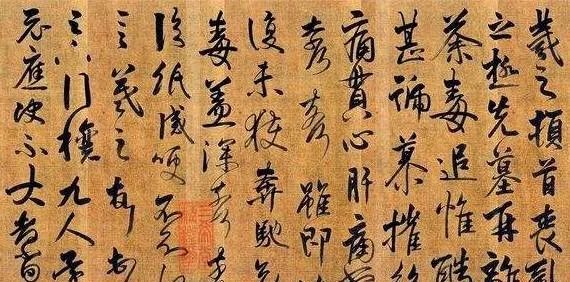 羲之頓首喪亂
之極先墓再離
荼毒追惟酷
甚號慕摧絕
痛貫心肝痛
奈何奈何雖即
復未獲奔馳哀
毒益深奈何
臨紙感哽不知
言羲之頓首
九人
應快不大